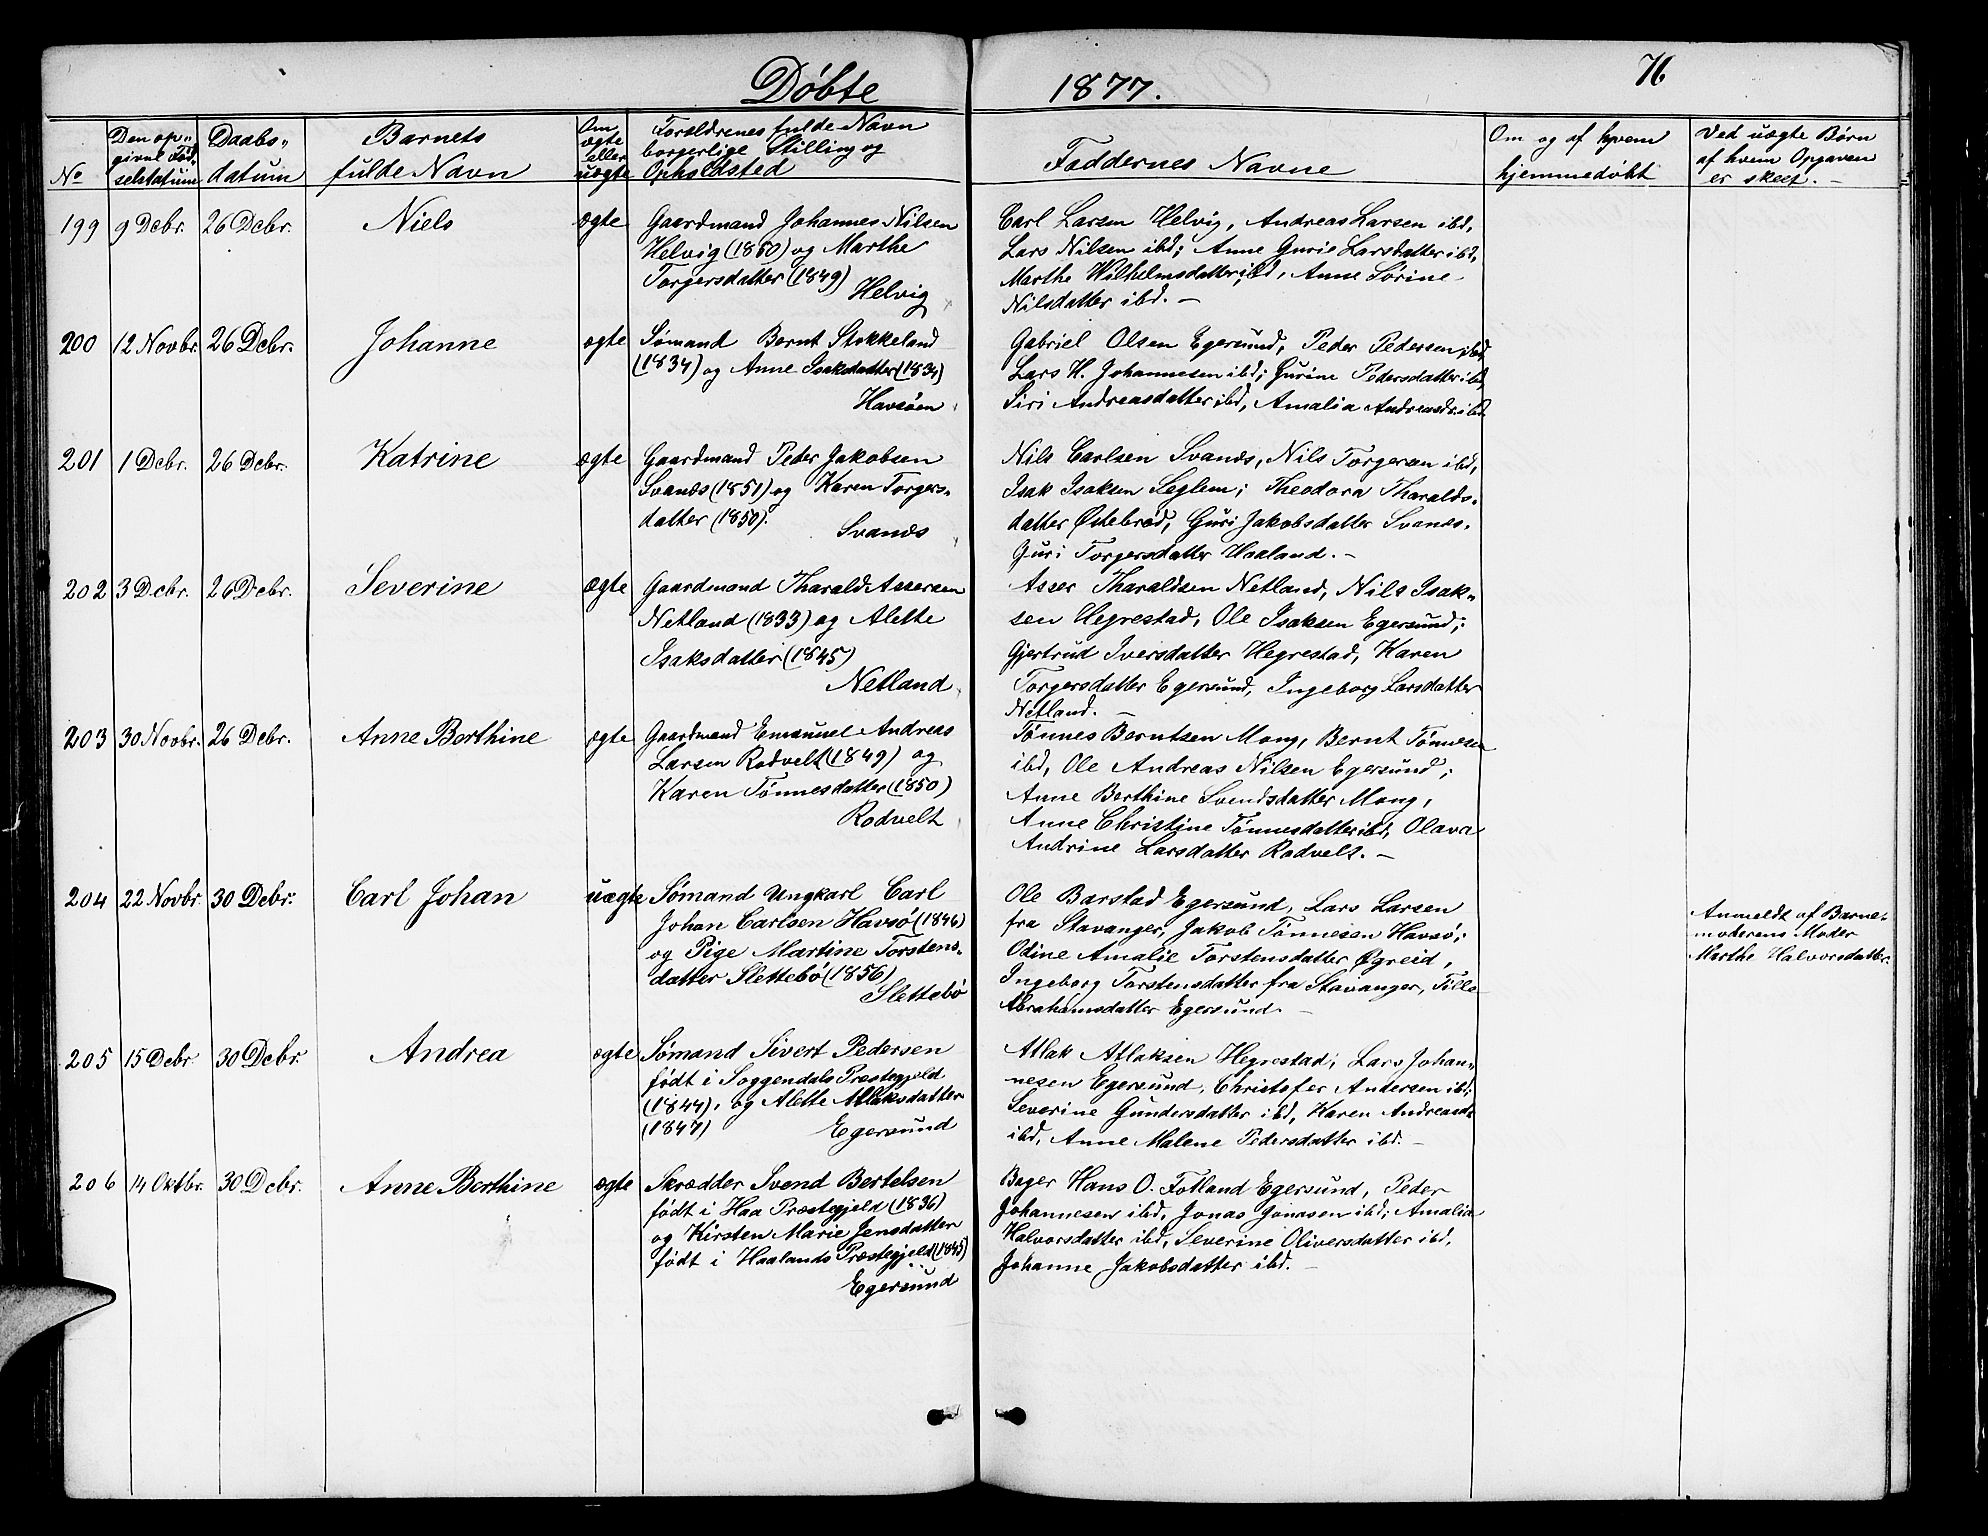 Döbte 1877. 76
No
Den op-
givne Föd-
selsdatum
Daabs-
datum
Barnets
fulde Navn
Om
ægte
eller
uægte
Forældrenes fulde Navn
borgerlige Stilling og
Opholdsted
Faddernes Navne
Om og af hvem
hjemmedöbt
Ved uægte Börn
af hvem Opgaven
er skeet. -
199 9 Debr. 26 Debr. Niels ægte
Gaardmand Johannes Nilsen
Helvig (1850) og Marthe
Torgersdatter (1849)
Helvig
Carl Larsen Helvig, Andreas Larsen ibd,
Lars Nilsen ibd; Anne Gurie Larsdatter ibd,
Marthe Wilhelmsdatter ibd, Anne Sörine
Nilsdatter ibd. -
200 12 Novbr. 26 Debr. Johanne ægte
Sömand Bernt Stokkeland
(1834) og Anne Isaksdatter (1834)
Havsöen
Gabriel Olsen Egersund, Peder Pedersen ibd,
Lars H. Johannesen ibd; Gurine Pedersdatter ibd,
Siri Andreasdatter ibd, Amalia Andreasdr. ibd.
201 1 Debr. 26 Debr. Katrine ægte
Gaardmand Peder Jakobsen
Svanæs (1851) og Karen Torgers-
datter (1850).
Svanæs
Nils Carlsen Svanæs, Nils Torgersen ibd,
Isak Isaksen Seglem; Theodora Tharalds-
datter Östebröd, Guri Jakobsdatter Svanæs,
Guri Torgersdatter Haaland. -
202 3 Debr. 26 Debr. Severine ægte
Gaardmand Tharald Assersen
Netland (1833) og Alette
Isaksdatter (1845)
Netland
Asser Tharaldsen Netland, Nils Isak-
sen Hegrestad, Ole Isaksen Egersund;
Gjertrud Iversdatter Hegrestad, Karen
Torgersdatter Egersund, Ingeborg Larsdatter
Netland. -
203 30 Novbr. 26 Debr. Anne Berthine ægte
Gaardmand Emanuel Andreas
Larsen Rodvelt (1849) og
Karen Tönnesdatter (1850)
Rodvelt
Tönnes Berntsen Mong, Bernt Tönnesen
ibd, Ole Andreas Nilsen Egersund;
Anne Berthine Svendsdatter Mong,
Anne Christine Tönnesdatter ibd, Olava
Andrine Larsdatter Rodvelt. -
204 22 Novbr. 30 Debr. Carl Johan uægte
Sömand Ungkarl Carl
Johan Carlsen Havsö (1846)
og Pige Martine Torstens-
datter Slettebö (1856)
Slettebö
Ole Barstad Egersund, Lars Larsen
fra Stavanger, Jakob Tönnesen Havsö;
Odine Amalie Torstensdatter Ögreid,
Ingeborg Torstensdatter fra Stavanger, Tilla
Abrahamsdatter Egersund. -
Anmeldt af Barne-
moderens Moder
Marthe Halvorsdatter.
205 15 Debr. 30 Debr. Andrea ægte
Sömand Sivert Pedersen
födt i Soggendals Præstegjeld
(1844), og Alette Atlaksdatter
(1847) Egersund
Atlak Atlaksen Hegrestad; Lars Johan-
nesen Egersund, Christofer Andersen ibd;
Severine Gundersdatter ibd, Karen Andreasdr
ibd, Anne Malene Pedersdatter ibd. -
206 14 Oktbr. 30 Debr. Anne Berthine ægte
Skrædder Svend Bertelsen
födt i Haa Præstegjeld (1836)
og Kirsten Marie Jensdatter
födt i Haalands Præstegjeld (1845)
Egersund
Bager Hans O. Fotland Egersund, Peder
Johannesen ibd, Jonas Jonasen ibd; Amalia
Halvorsdatter ibd, Severine Oliversdatter ibd,
Johanne Jakobsdatter ibd. -